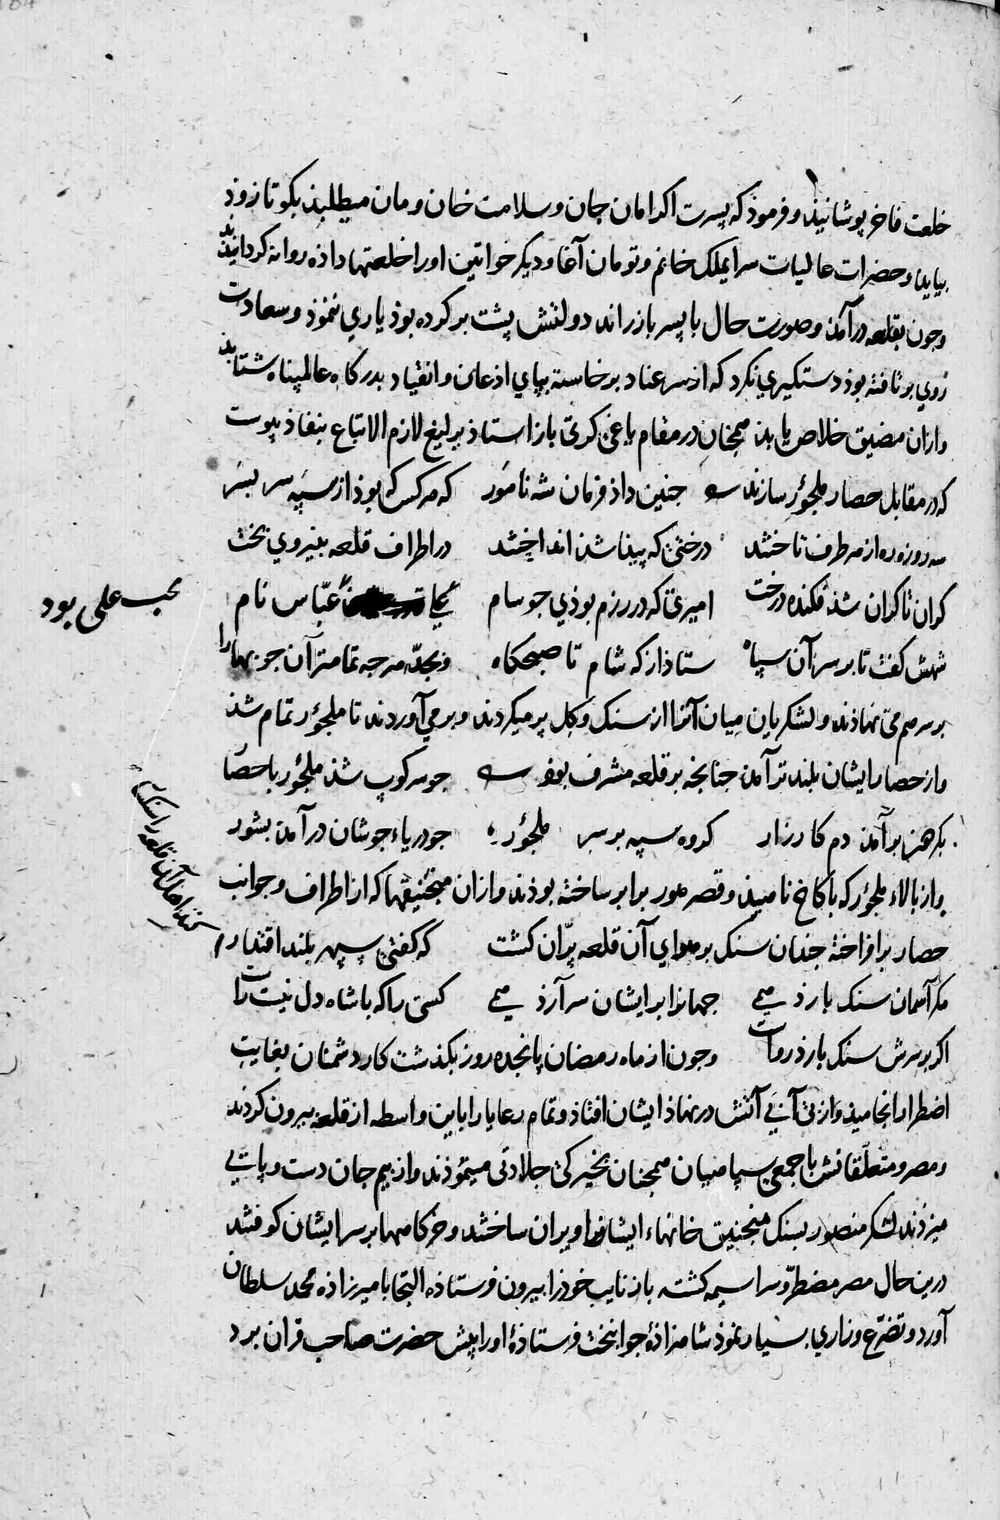 خلعت فاخر پوشانیذ و فرموذ که پسرت اکر امان جان و سلامت خان و مان میطلبذ بکو تا زوذ
بیاید و حضرات عالیات سرایملک خانم و تومان آغا و دیکر خواتین او را خلعتها داذه روانه کردانیذند
و جون بقلعه درآمذ و صورت حال با پسر باز راند دولتش پشت بر کرده بوذ یاری ننموذ و سعادت
روی برتافته بوذ دستکیری نکرد که از سر عناد برخاسته بپای اذعان و انقیاد بدرکاه عالمپناه شتابد
و ازان مضیق خلاص یابد همچنان در مقام یاغی کری باز استاذ یرلیغ لازم الاتباع بنفاذ پیوست
که در مقابل حصار ملجور سازند جنین داذ فرمان شه نامور که هر کس که بوذ از سپه سر بسر
سه روزه ره از هر طرف تاختند درختی که پیدا شذ انداختند در اطراف قلعه بنیروی بخت
کران تا کران شذ فکنده درخت امیری که در رزم بوذی جو سام عبّاس نام
شهش کفت تا بر سر آن سپاه ستاذ از که شام تا صبحکاه و بجدّ هر جه تمامتر آن جوبها را
بر سر هم می نهاذند و لشکریان میان آنرا از سنک و کل پر میکردند و بر می آوردند تا ملجور تمام شذ
و از حصار ایشان بلندتر آمذ جنانجه بر قلعه مشرف بوذ جو سرکوب شذ ملجور با حصار
بکر هنر بر آمذ دم کارزار کروه سپه بر سر ملجور جو دریاء جوشان در آمذ بشور
و از بالاء ملجور که با کاخ ناهیذ و قصر هور برابر ساخته بوذند و ازان منجنیقها که از اطراف و جوانب
حصار برافراخته جندان سنک بر هوای آن قلعه پرّان کشت که کفتی سپهر بلند اقتدار
مکر آسمان سنک بارذ همی جهانرا بر ایشان سر آرذ همی کسی را که با شاه دل نیست راست
اکر بر سرش سنک بارذ رواست و جون از ماه رمضان پانجده روز بکذشت کار دشمنان بغایت
اضطرار انجامیذ و از بی آبی آتش در نهاذ ایشان افتاذ و تمام رعایا را باین واسطه از قلعه بیرون کردند
و مصر و متعلّقانش با جمعی سپاهیان همچنان بخیرکی جلادتی مینموذند و از بیم جان دست و پایی
میزدند لشکر منصور بسنک منجنیق خانهاء ایشانرا ویران ساختند و خرکاهها بر سر ایشان کوفتند
درین حال مصر مضطرّ و سراسیمه کشته باز نایب خوذ را بیرون فرستاذه التجا بامیرزاذه محمد سلطان
آورد و تضرّع و زاری بسیار نموذ شاهزاذهٔ جوانبخت فرستاذهٔ او را پیش حضرت صاحب قران برد
محب علی بود